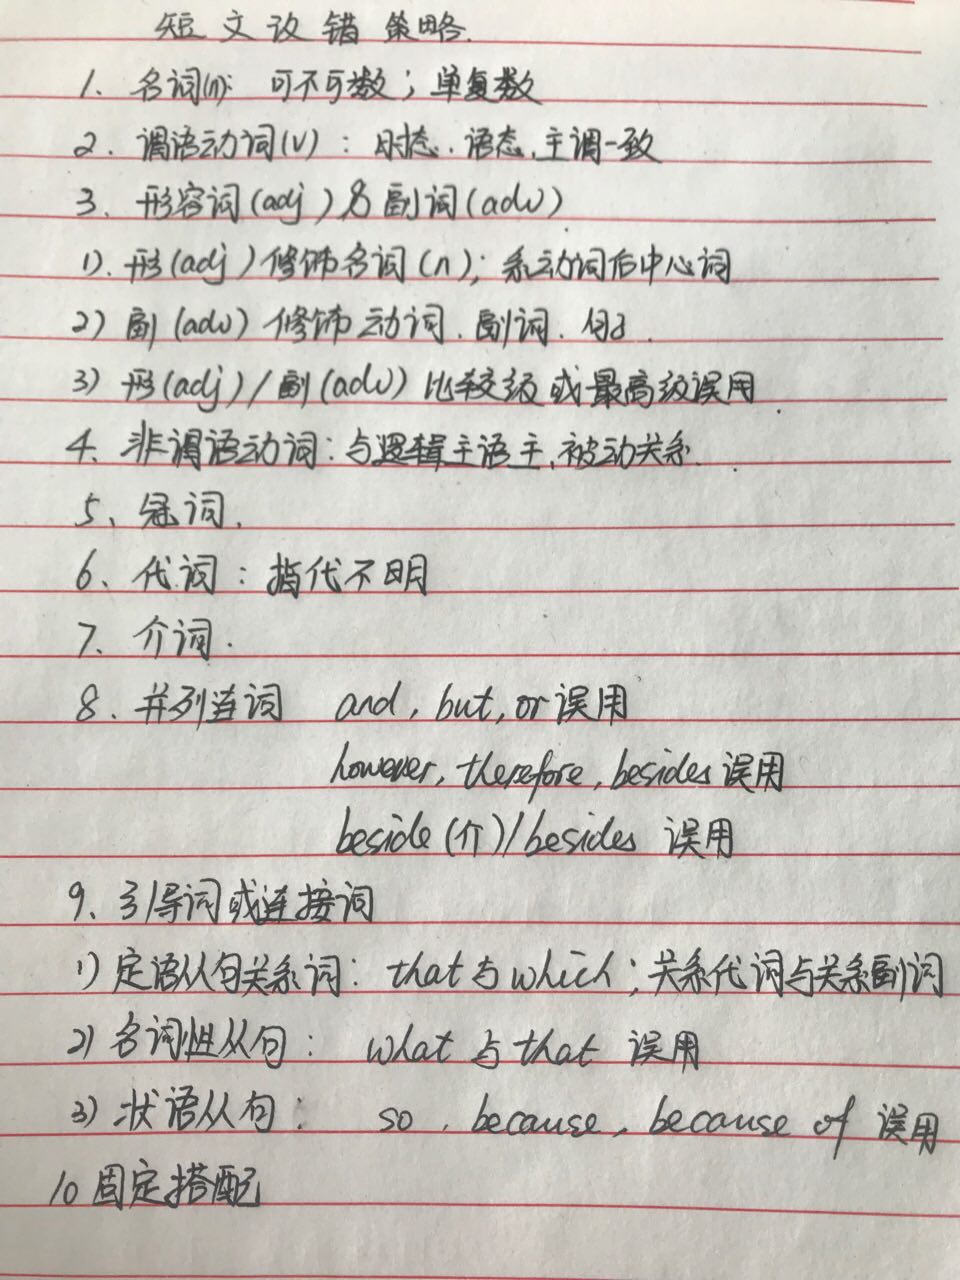 短文改错策略.
1. 名词(n): 可不可数；单复数
2. 谓语动词(v)：时态.语态.主谓一致
3. 形容词(adj)&副词(adv)
1). 形(adj)修饰名词(n)；系动词后中心词
2) 副(adv)修饰动词.副词.句子.
3) 形(adj)/副(adv)比较级或最高级误用
4、非谓语动词：与逻辑主语主、被动关系.
5、冠词.
6、代词：指代不明
7、介词.
8、并列连词 and, but, or误用
however, therefore, besides误用
beside(介)/besides 误用
9、引导词或连接词
1) 定语从句关系词：that与which；关系代词与关系副词
2) 名词性从句：what与that误用
3) 状语从句：so, because, because of误用
10 固定搭配